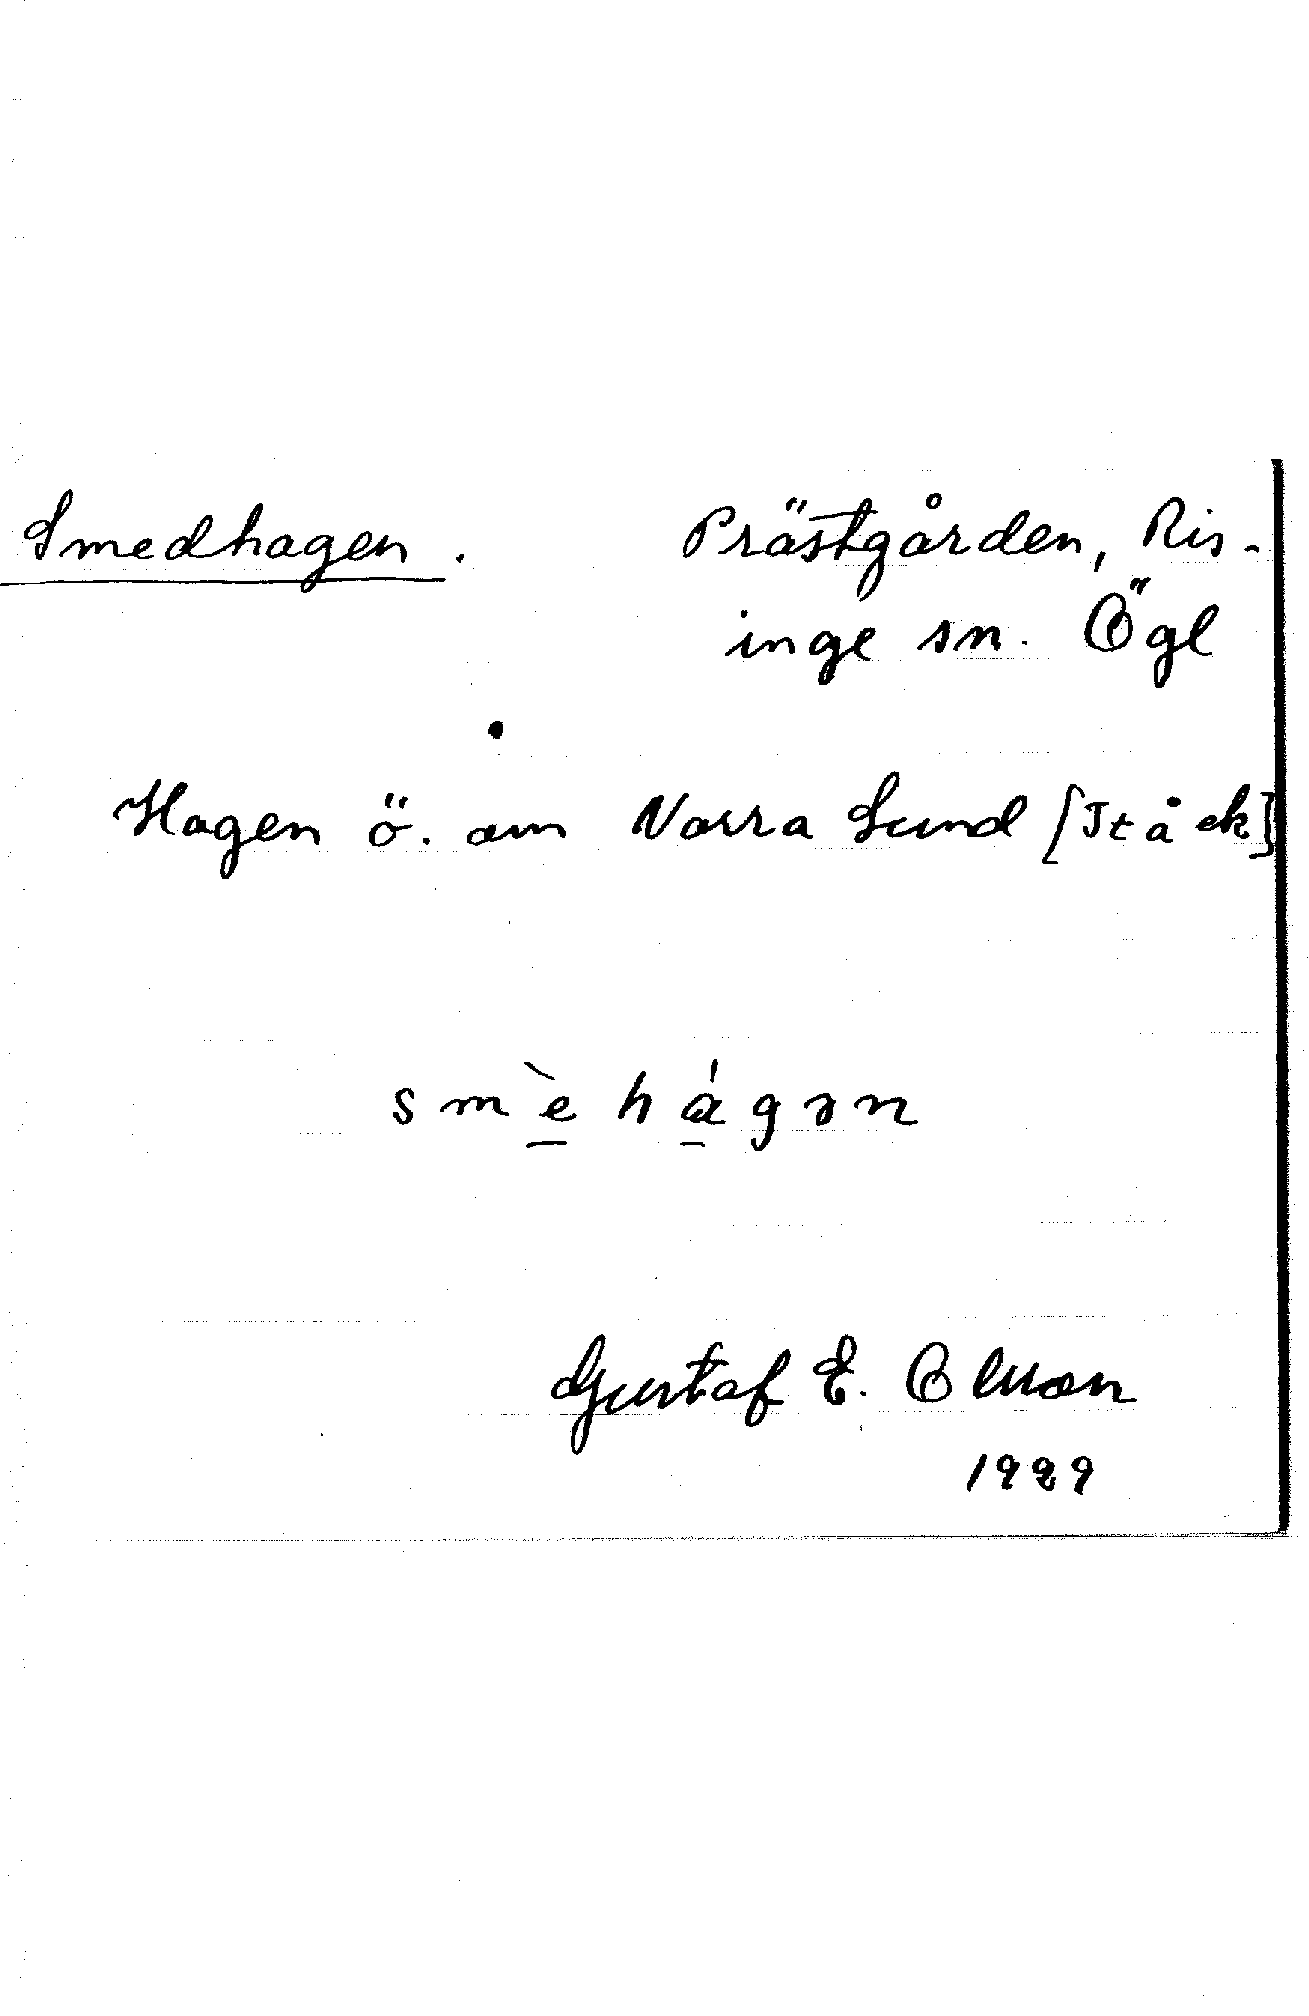 Smedhagen. Prästgården, Ris-
inge sn. Ögl
Hagen ö. om Norra Sund
smèhágən
Gustaf E. Olsson
1929